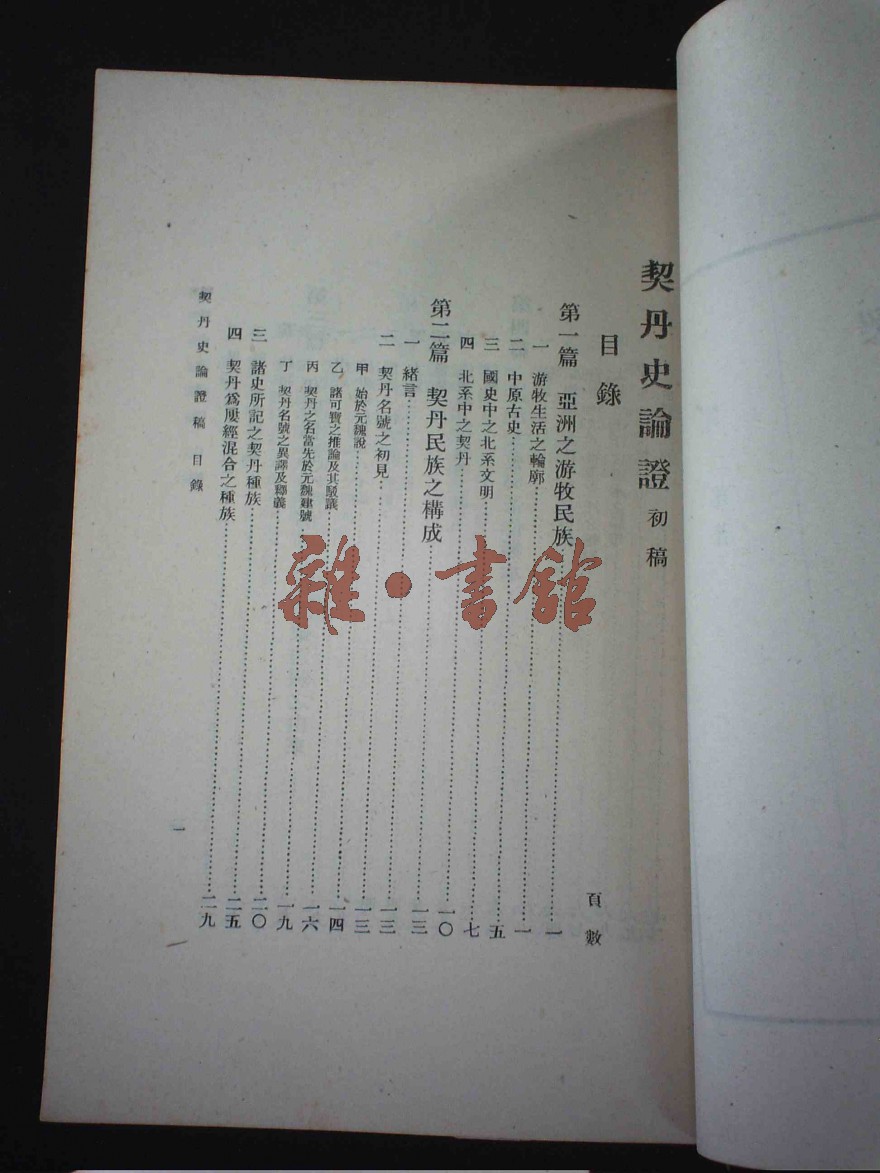 契丹史論證初稿
目錄
頁數
第一篇 亞洲之游牧民族……一
一 游牧生活之輪廓……一
二 中原古史……五
三 國史中之北系文明……七
四 北系中之契丹……一〇
第二篇 契丹民族之構成……一三
一 緒言……一三
二 契丹名號之初見……一三
甲 始於元魏說……一四
乙 諸可寶之推論及其駁議……一六
丙 契丹之名當先於元魏建號……一九
丁 契丹名號之異譯及釋義……二〇
三 諸史所記之契丹種族……二五
四 契丹爲屢經混合之種族……二九
契丹史論證稿 目錄
一
雜·書館